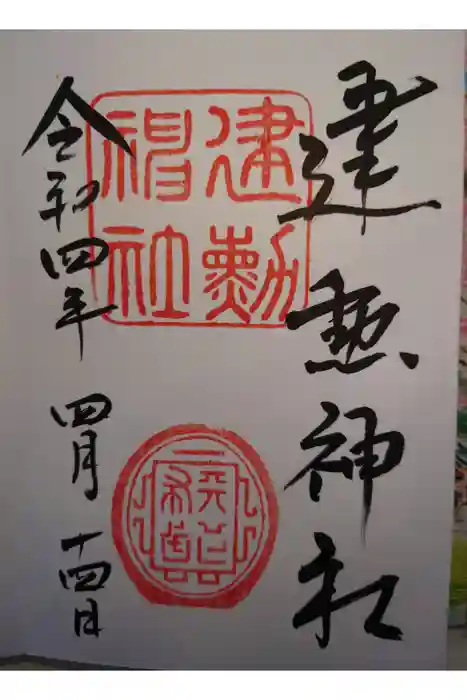 建勲神社
建勲
神社
令和四年 四月 十四日